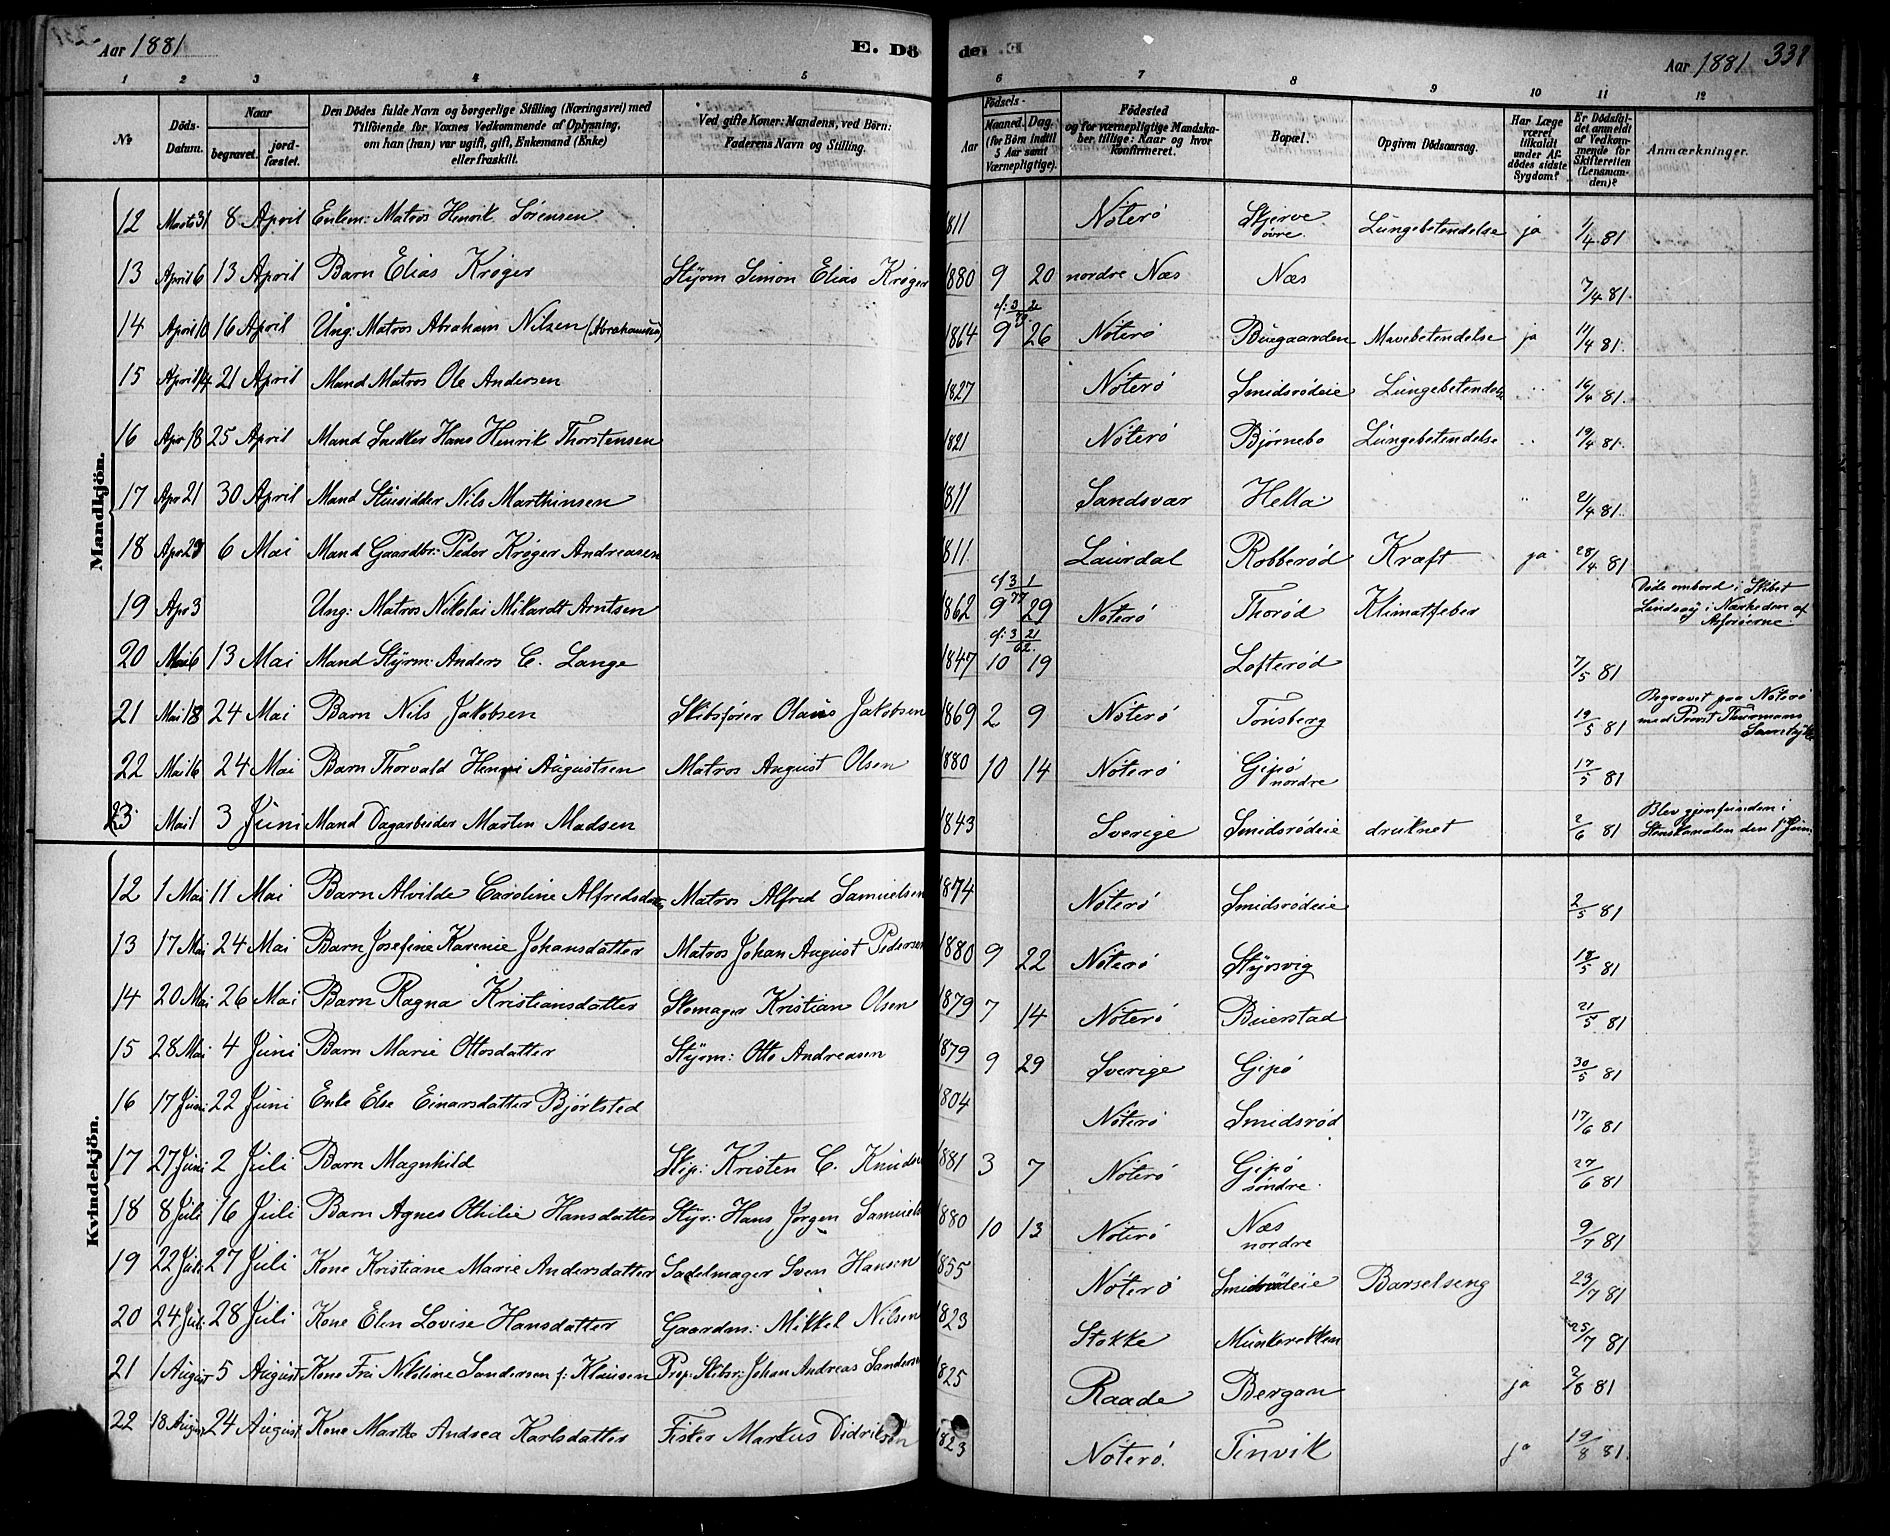 Aar 1881 E. Dö
de. Aar 1881 331
1 2 3 4 5 6 7 8 9 10 11 12
No Döds-Datum. Naar begravet. jord-fæstet. Den Dödes fulde Navn og borgerlige Stilling (Næringsvei) med Tilföiende for Voxnes Vedkommende af Oplysning, om han (hun) var ugift, gift, Enkemand (Enke) eller fraskilt. Ved gifte Koner: Mandens, ved Börn: Faderens Navn og Stilling. Födsels- Aar Maaned. Dag. (for Börn indtil 5 Aar samt Værnepligtige). Födested og for værnepligtige Mandskaber tillige: Naar og hvor konfirmeret. Bopæl. Opgiven Dödsaarsag. Har Læge været tilkaldt under Afdödes sidste Sygdom? Er Dödsfaldet anmeldt af Vedkommende for Skifteretten (Lensmanden)? Anmærkninger.
Mandkjön.
12 Marts 31 8 April Enkem: Matros Henrik Sörensen 1811 Nöterö Skjerve övre. Lungebetendelse ja 1/4 81
13 April 6 13 April Barn Elias Kröger Styrm Simon Elias Kröger 1880 9 20 nordre Næs Næs 7/4 81.
14 April 10 16 April Ung: Matros Abraham Nilsen (Abrahamsen) 1864 9 26 Nöterö Buegaarden Mavebetendelse ja 11/4 81.
15 April 14 21 April Mand Matros Ole Andersen 1827 Nöterö Smidsrödeie Lungebetendelse " 16/4 81.
16 Apr 18 25 April Mand Snedker Hans Henrik Thorstensen 1821 Nöterö Björnebo Lungebetendelse " 19/4 81.
17 Apr 21 30 April Mand Stuesidder Nils Marthinsen 1811 Sandsvær Hella " 21/4 81.
18 Apr 27 6 Mai Mand Gaardbr: Peder Kröger Andreasen 1811. Laurdal Robberöd Kræft ja 28/4 81
19 Apr 3 Ung: Matros Nikolai Mikardt Arntsen 1862 9 29 Nöterö Thoröd Klimatfeber Döde ombord i Skibet Lindsay i Nærheden af Asorerne.
20 Mai 6 13 Mai Mand Styrm: Anders C. Lange 1847 10 19 Lofteröd 7/5 81
21 Mai 18 24 Mai Barn Nils Jakobsen Skibsförer Olaus Jakobsen 1869 2 9 Nöterö Tönsberg 19/5 81 Begravet paa Nöterö med Provst Thurmans Samtykke
22 Mai 16 24 Mai Barn Thorvald Henri Augustsen Matros August Olsen 1880 10 14 Nöterö Gipö nordre 17/5 81
23. Mai 1 3 Juni Mand Dagarbeider Martin Madsen 1843 Sverige Smidsrödeie druknet 2/6 81 Blev gjenfunden i Stenskanalen den 1 Juni.
Kvindekjön.
12 1 Mai 11 Mai Barn Alvilde Caroline Alfredsdatter Matros Alfred Samuelsen 1874 Nöterö Smidsrödeie 2/5 81
13 17 Mai 24 Mai Barn Josefine Karenie Johansdatter Matros Johan August Pedersen 1880 9 22 Nöterö Styrsvig 18/5 81
14 20 Mai 26 Mai Barn Ragna Kristiansdatter Skomager Kristian Olsen 1879 7 14 Nöterö Buerstad 21/5 81
15 28 Mai 4 Juni Barn Marie Ottosdatter Styrm: Otto Andreasen 1879 9 29 Sverige Gipö 30/5 81
16 17 Juni 22 Juni Enke Else Einarsdatter Björksted 1804 Nöterö Smidsröd 17/6 81
17 27 Juni 2 Juli Barn Magnhild Skip: Kristen C. Knudsen 1881 3 7 Nöterö Gipö söndre. 27/6 81
18 8 Juli 16 Juli Barn Agnes Othilie Hansdatter Styr: Hans Jörgen Samuels 1880 10 13 Nöterö Næs nordre 9/7 81
19 22 Juli 27 Juli Kone Kristiane Marie Andersdatter Sadelmager Sven Hansen 1855 Nöterö Smidsrödeie Barselseng 23/7 81
20 24 Juli 28 Juli Kone Elen Lovise Hansdatter Gaardm: Mikkel Nilsen 1823 Stokke Munkerekken 25/7 81
21 1 August 5 August Kone Fru Nikoline Sandersen f: Klausen Prop: Skibsr: Johan Andreas Sandersen 1825 Raade Bergan ja 2/8 81
22 18 August 24 August Kone Marthe Andrea Karlsdatter Fisker Markus Didriksen 1823 Nöterö. Tinvik ja 19/8 81.